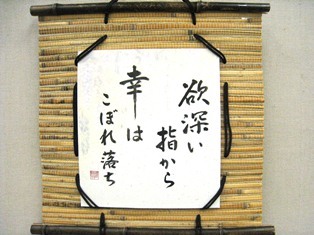 欲深い
指から
幸は
こぼれ落ち